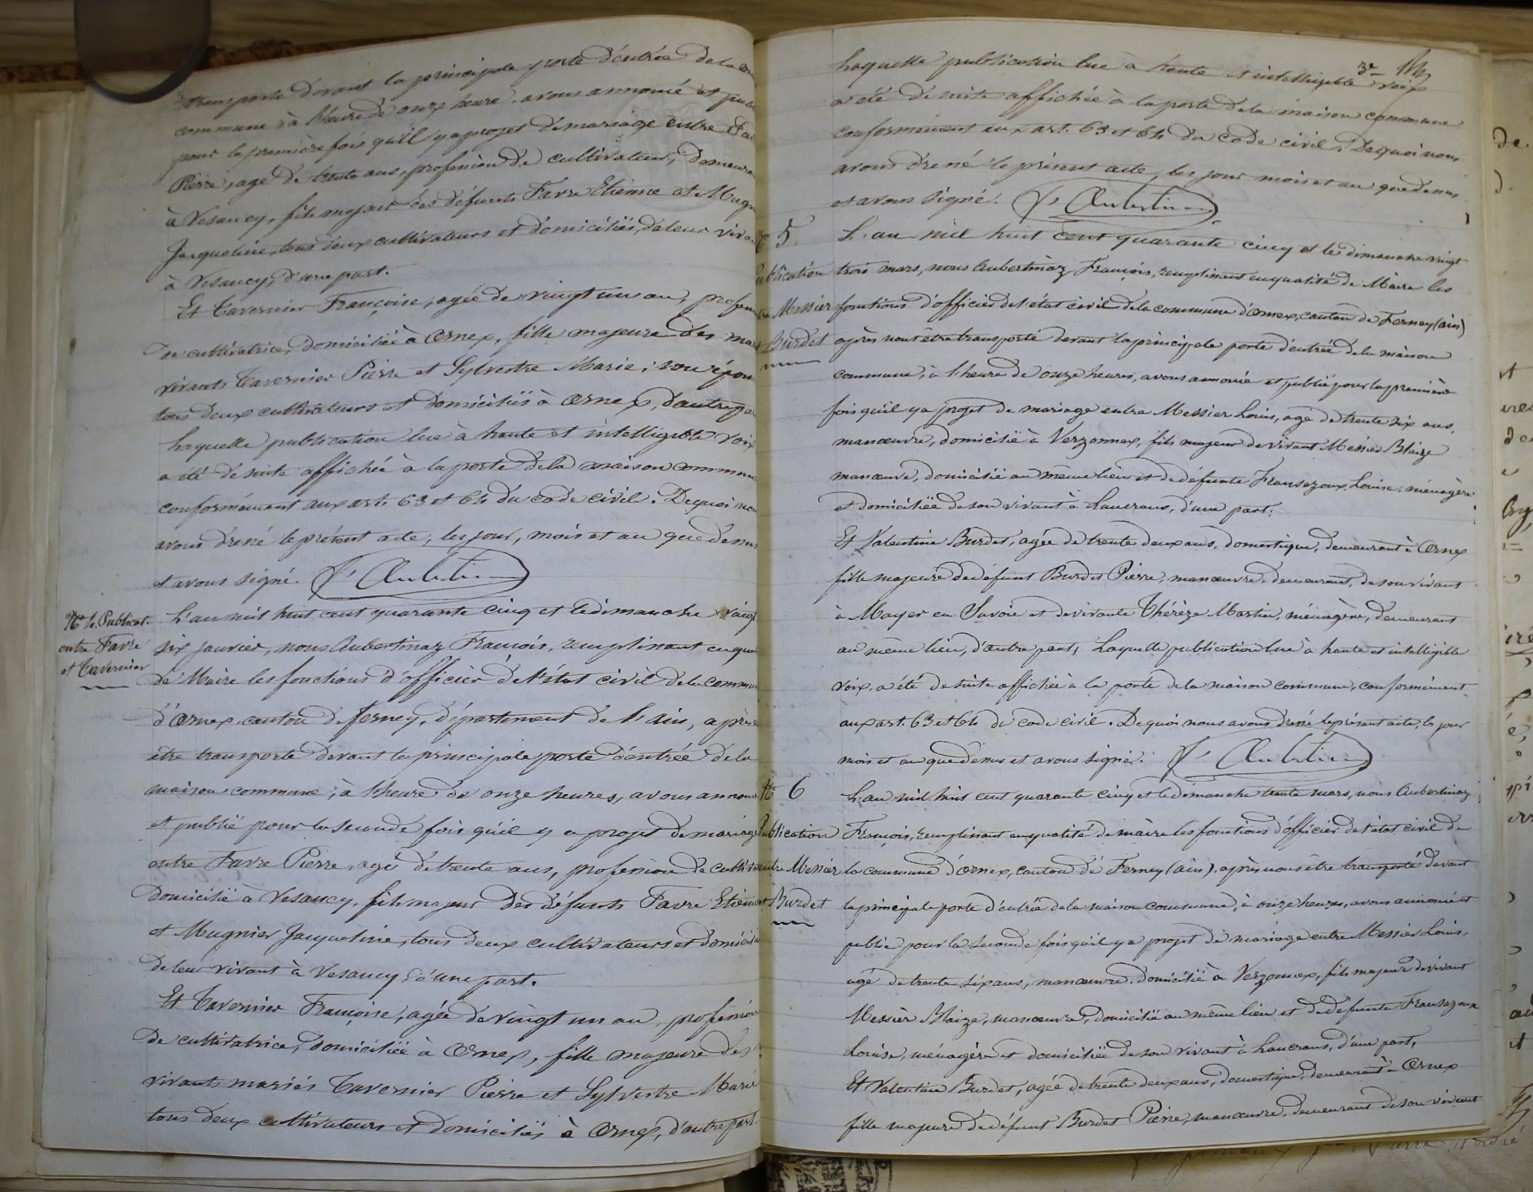 transporté devant la principale porte d'entrée de la
commune à l'heure de onze heures, avons annoncé et
pour la première fois qu'il y a projet de mariage entre
Pierre, agé de trente ans, profession de cultivateur,
à Vesancy, fils majeur des défunts Favre Etienne et
Jacqueline, tous deux cultivateurs et domiciliés, de leur
à Vesancy, d'une part.
Et Tavernier Françoise, agée de vingt un an,
de cultivatrice, domiciliée à Ornex, fille majeure des
vivants Tavernier Pierre et Sylvestre Marie, son
tous deux cultivateurs et domiciliés à Ornex,
Laquelle publication lue à haute et intelligible voix
a été de suite affichée à la porte de la maison
conformément aux art. 63 et 64 du code civil. De quoi
avons dressé le présent acte, les jour, mois et an que dessus
et avons signé. 
N° 4 Publicat.
entre Favre
et Tavernier
L'an mil huit cent quarante cinq et le dimanche vingt
six janvier, nous Aubertinaz François, remplissant en
de Maire les fonctions d'officier de l'état civil de la
d'Ornex canton de ferney, département de l'ain, après
être transporté devant la principale porte d'entrée de la
maison commune, à l'heure de onze heures, avons
et publié pour la seconde fois qu'il y a projet de mariage
entre Favre Pierre, agé de trente ans, profession de
domicilié à Vesancy, fils majeur des défunts Favre
et Mugnier Jacqueline, tous deux cultivateurs et
de leur vivant à Vesancy d'une part.
Et Tavernier Françoise, agée de vingt un an, profession
de cultivatrice, domiciliée à Ornex, fille majeure des
vivants mariés Tavernier Pierre et Sylvestre Marie
tous deux cultivateurs et domiciliés à Ornex, d'autre part.
3e
Laquelle publication lue à haute et intelligible voix
a été de suite affichée à la porte de la maison commune
conformément aux art. 63 et 64 du code civil. De quoi nous
avons dressé le présent acte, les jour mois et an que dessus
et avons signé. 
5.
Publication
Messier
Burdet
L'an mil huit cent quarante cinq et le dimanche vingt
trois mars, nous Aubertinaz François, remplissant en qualité de Maire les
fonctions d'officier de l'état civil de la commune d'Ornex, canton de Ferney (ain)
après nous être transporté devant la principale porte d'entrée de la maison
commune, à l'heure de onze heures, avons annoncé et publié pour la première
fois qu'il y a projet de mariage entre Messier Louis, agé de trente six ans,
manœuvre, domicilié à Verzonnex, fils majeur de vivant Messier Blaize
manœuvre, domicilié au même lieu et de défunte Fransazoux Louise, ménagère
et domiciliée de son vivant à Lancrans, d'une part.
Et Valentine Burdet, agée de trente deux ans, domestique, demeurant à Ornex
fille majeure de défunt Burdet Pierre, manœuvre demeurant, de son vivant
à en Savoie et de vivante Thérèze Martin, ménagère, demeurant
au même lieu, d'autre part, Laquelle publication lue à haute et intelligible
voix, a été de suite affichée à la porte de la maison commune, conformément
aux art. 63 et 64 du code civil. De quoi nous avons dressé le présent acte, les jour
mois et an que dessus et avons signé. 
N° 6
Publication
entre Messier
et Burdet
L'an mil huit cent quarante cinq et le dimanche trente mars, nous Aubertinaz
François, remplissant en qualité de maire les fonctions d'officier de l'état civil de
la commune d'Ornex, canton de Ferney (ain), après nous être transporté devant
la principale porte d'entrée de la maison commune, à onze heures, avons annoncé et
publié pour la seconde fois qu'il y a projet de mariage entre Messier Louis,
agé de trente six ans, manœuvre, domicilié à Verzonnex, fils majeur de vivant
Messier Blaize, manœuvre, domicilié au même lieu et de défunte Fransazoux
Louise, ménagère et domiciliée de son vivant à Lancrans, d'une part,
Et Valentine Burdet, agée de trente deux ans, domestique, demeurant à Ornex
fille majeure de défunt Burdet Pierre, manœuvre demeurant de son vivant